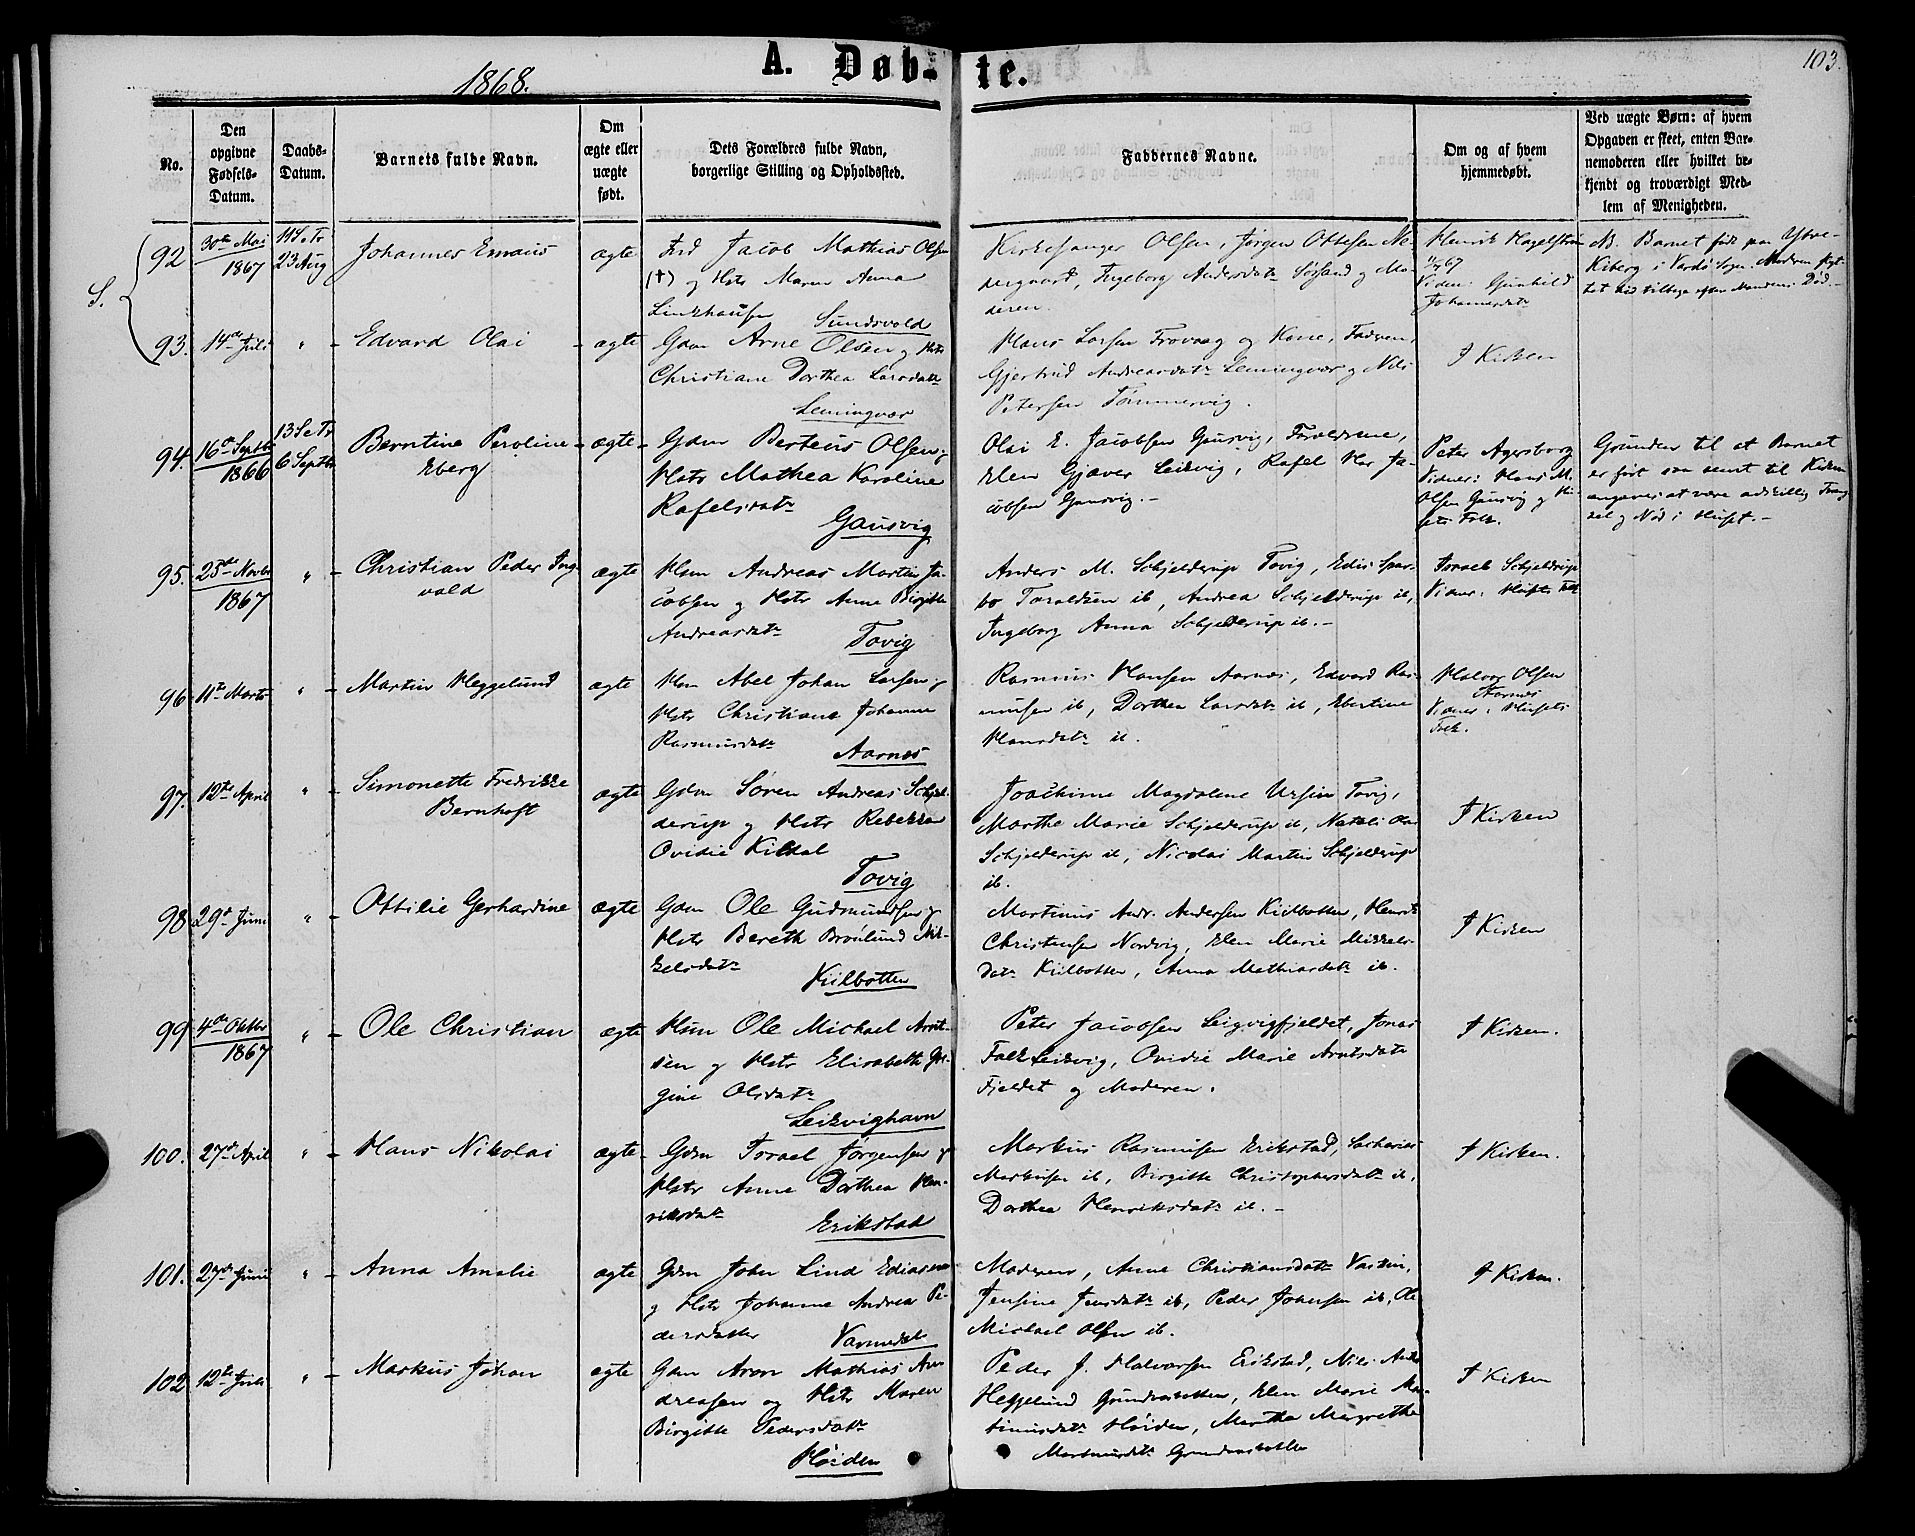 A. Døb-te.
1868.
103.
No.
Den opgivne Fødsels-Datum.
Daabs-Datum.
Barnets fulde Navn.
Om ægte eller uægte født.
Dets Forældres fulde Navn, borgerlige Stilling og Opholdssted.
Faddernes Navne.
Om og af hvem hjemmedøbt.
Ved uægte Børn: af hvem Opgaven er skeet, enten Barnemoderen eller hvilket bekjendt og troværdigt Medlem af Menigheden.
S.
92
30te Mai 1867
11 S. e Tr
23 Aug
Johannes Emaus
ægte
Jacob Mathias Olsen
(†) og Hstr Maren Anna
Sundsvold
Kirkesanger Olsen, Jørgen Ottesen Ne-
dergaard, Ingeborg Andersdatr Sørsand og Mo-
deren.
Henrik Hagelstrøm
Vidner: Gunhild
Johannesdatr
NB. Barnet født paa Ytre-
Kiberg i Vardø Sogn. Moderen flyt-
tet hid tilbage efter Mandens Død.
93.
14de Juli
"
Edvard Olai
ægte
Gdm Arne Olsen og Hstr
Christiane Dorthea Larsdatr
Lemingvær
Hans Larsen Trovaag og Kone, Fadren,
Gjertrud Andreasdatr Lemingvær og Nils
Petersen Tømmervig.
I Kirken
94.
16de Septbr 1866
13 S e Tr
6 Septbr
Berntine Peroline
Eberg
ægte
Gdm Berteus Olsen og
Hstr Mathea Karoline
Rafelsdatr
Gausvig
Olai E. Jacobsen Gausvig, Forældrene,
Elen Gjæver Leikvig, Rafel Ja-
cobsen Gausvig.
Peter Agersborg
Vidner: Hans M.
Olsen Gausvig og Hu-
sets Folk.
Grunden til at Barnet
er ført saa sent til Kirken
angaves at være adskillig Træng-
sel og Nød i Huset.
95.
25de Novbr 1867
"
Christian Peder Ing-
vald
ægte
Hsm Andreas Martin Ja-
cobsen og Hstr Anne Birgitte
Andreasdatr
Tovig
Anders M. Schjelderup Tovig, Edis Spar-
bo Taraldsen ib, Andrea Schjelderup ib,
Ingeborg Anna Schjelderup ib.
Israel Schjelderup
Vidner: Husets Folk
96
11te Marts
"
Martin Heggelund
ægte
Hsm Abel Johan Larsen og
Hstr Christiane Johanne
Rasmusdatr
Aarnæs
Rasmus Hansen Aarnæs, Edvard Ras-
musen ib, Dorthea Larsdatr ib, Ebertine
Hansdatr ib.
Halvor Olsen
Aarnæs
Vidner: Husets
Folk.
97.
12te April
"
Simonette Fredrikke
Bernhoft
ægte
Gdm Søren Andreas Schjel-
derup og Hstr Rebekka
Ovidie Kildal
Tovig
Joachime Magdalene Ursin Tovig,
Marthe Marie Schjelderup ib, Natali
Schjelderup ib, Nicolai Martin Schjelderup
ib.
I Kirken
98
29de Juni
"
Ottilie Gerhardine
ægte
Gdm Ole Gudmundsen og
Hstr Bereth Brønlund Mik-
kelsdatr
Kiilbotten
Martinus Andr. Andersen Kiilbotten, Henrik
Christensen Nordvig, Elen Marie Mikkels-
datr Kiilbotten, Anna Mathiasdatr ib.
I Kirken
99
4de Oktbr 1867
"
Ole Christian
ægte
Hsm Ole Michael Arnt-
sen og Hstr Elisabeth Ge-
gine Olsdatr
Leikvighavn
Peter Jacobsen Leigvigfjeldet, Jonas
Falk Leikvig, Ovidie Marie Arntsdatr
Fjeldet og Moderen.
I Kirken.
100.
27de April
"
Hans Nikolai
ægte
Gdm Israel Jørgensen og
Hstr Anne Dorthea Hen-
riksdatr
Erikstad
Markus Rasmusen Erikstad, Zacharias
Markusen ib, Birgitte Christophersdatr ib,
Dorthea Henriksdatr ib.
I Kirken.
101.
27de Juni
"
Anna Amalie
ægte
Gdm John Lind Ediassen
og Hstr Johanne Andrea Pe-
dersdatter
Varmedal
Moderen, Anne Christiansdatr Vaskin,
Jensine Jensdatr ib, Peder Johansen ib, Ole
Michael Olsen ib.
I Kirken.
102
12te Juli
"
Markus Johan
ægte
Gdm Aron Mathias An-
dreasen og Hstr Maren
Birgitte Pedersdatr
Høiden
Peder J. Halvorsen Erikstad, Nils Andr.
Heggelund Grundvasbotten, Elen Marie Mar-
tinusdatr Høiden, Marthe Margrethe
Martinusdatr Grundvasbotten
I Kirken